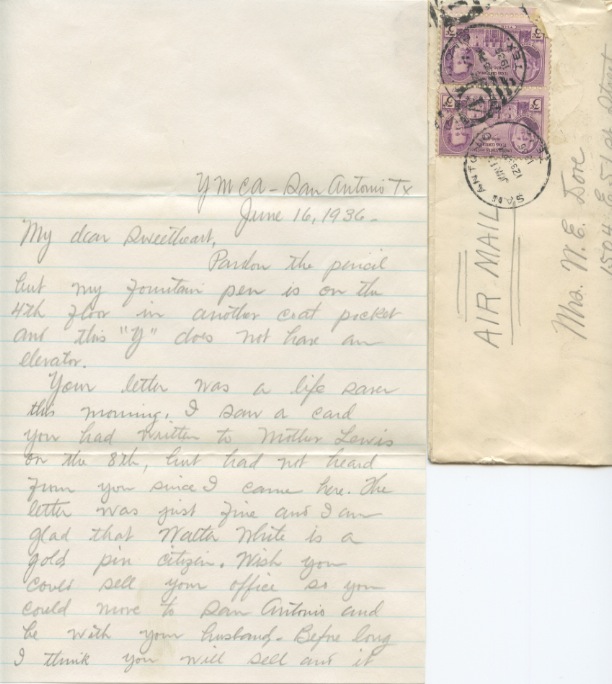 YMCA - San Antonio Tx
June 16, 1936 -
My dear Sweetheart,
Pardon the pencil
but my fountain pen is on the
4th floor in another coat pocket
and this "Y" does not have an
elevator.
Your letter was a life saver
this morning. I saw a card
you had written to Mother Lewis
on the 8th, but had not heard
from you since I came here. The
letter was just fine and I am
glad that Walter White is a
gold pin citizen. Wish you
could sell your office so you
could move to San Antonio and
be with your husband - Before long
I think you will sell and it
SAN ANTONIO
TEX.
AIR MAIL
Mrs. W. E. Dore
1504 E 5